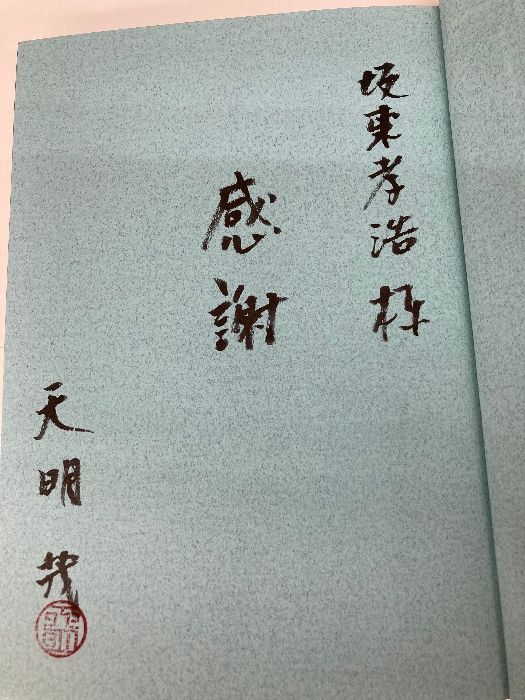 坂東孝浩 様
感謝
天明 茂